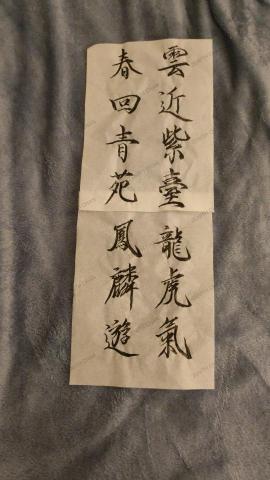 雲近紫臺龍虎氣
春回青苑鳳麟遊